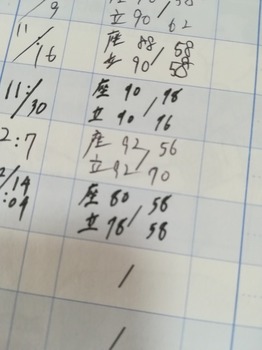 /9
立 90 / 62
11/16
座 88 / 58
立 90 / 58
11:/30
座 90 / 98
立 90 / 76
2:7
座 92 / 56
立 92 / 70
/14
:09
座 80 / 58
立 78 / 58
/
/